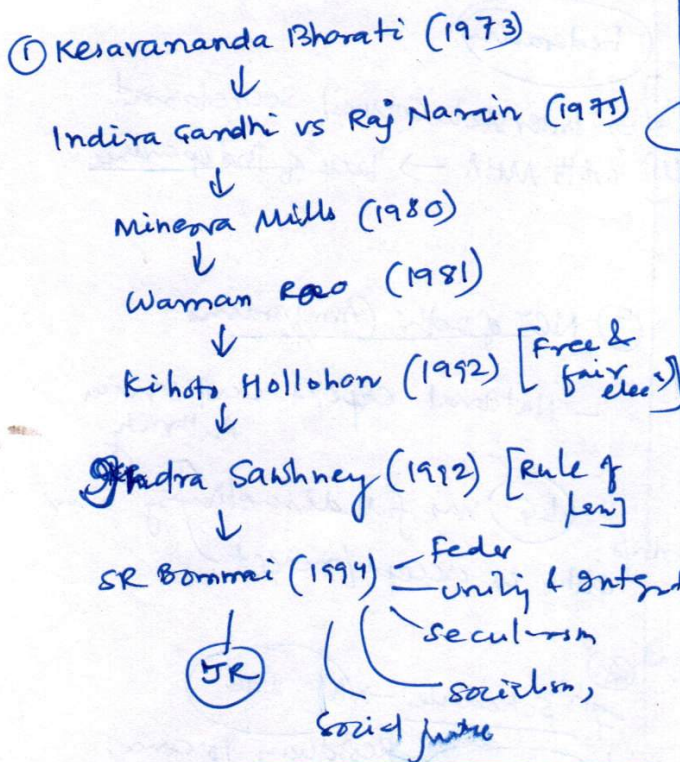 ① Kesavananda Bharati (1973)
↓
Indira Gandhi vs Raj Narain (1975)
↓
Minerva Mills (1980)
↓
Waman Rao (1981)
↓
Kihoto Hollohan (1992) [Free &
fair
elecⁿs]
↓
Indra Sawhney (1992) [Rule of
law]
↓
SR Bommai (1994) – Feder
– Unity & Integr
Secul–sm
JR
Socialism,
Social Justice